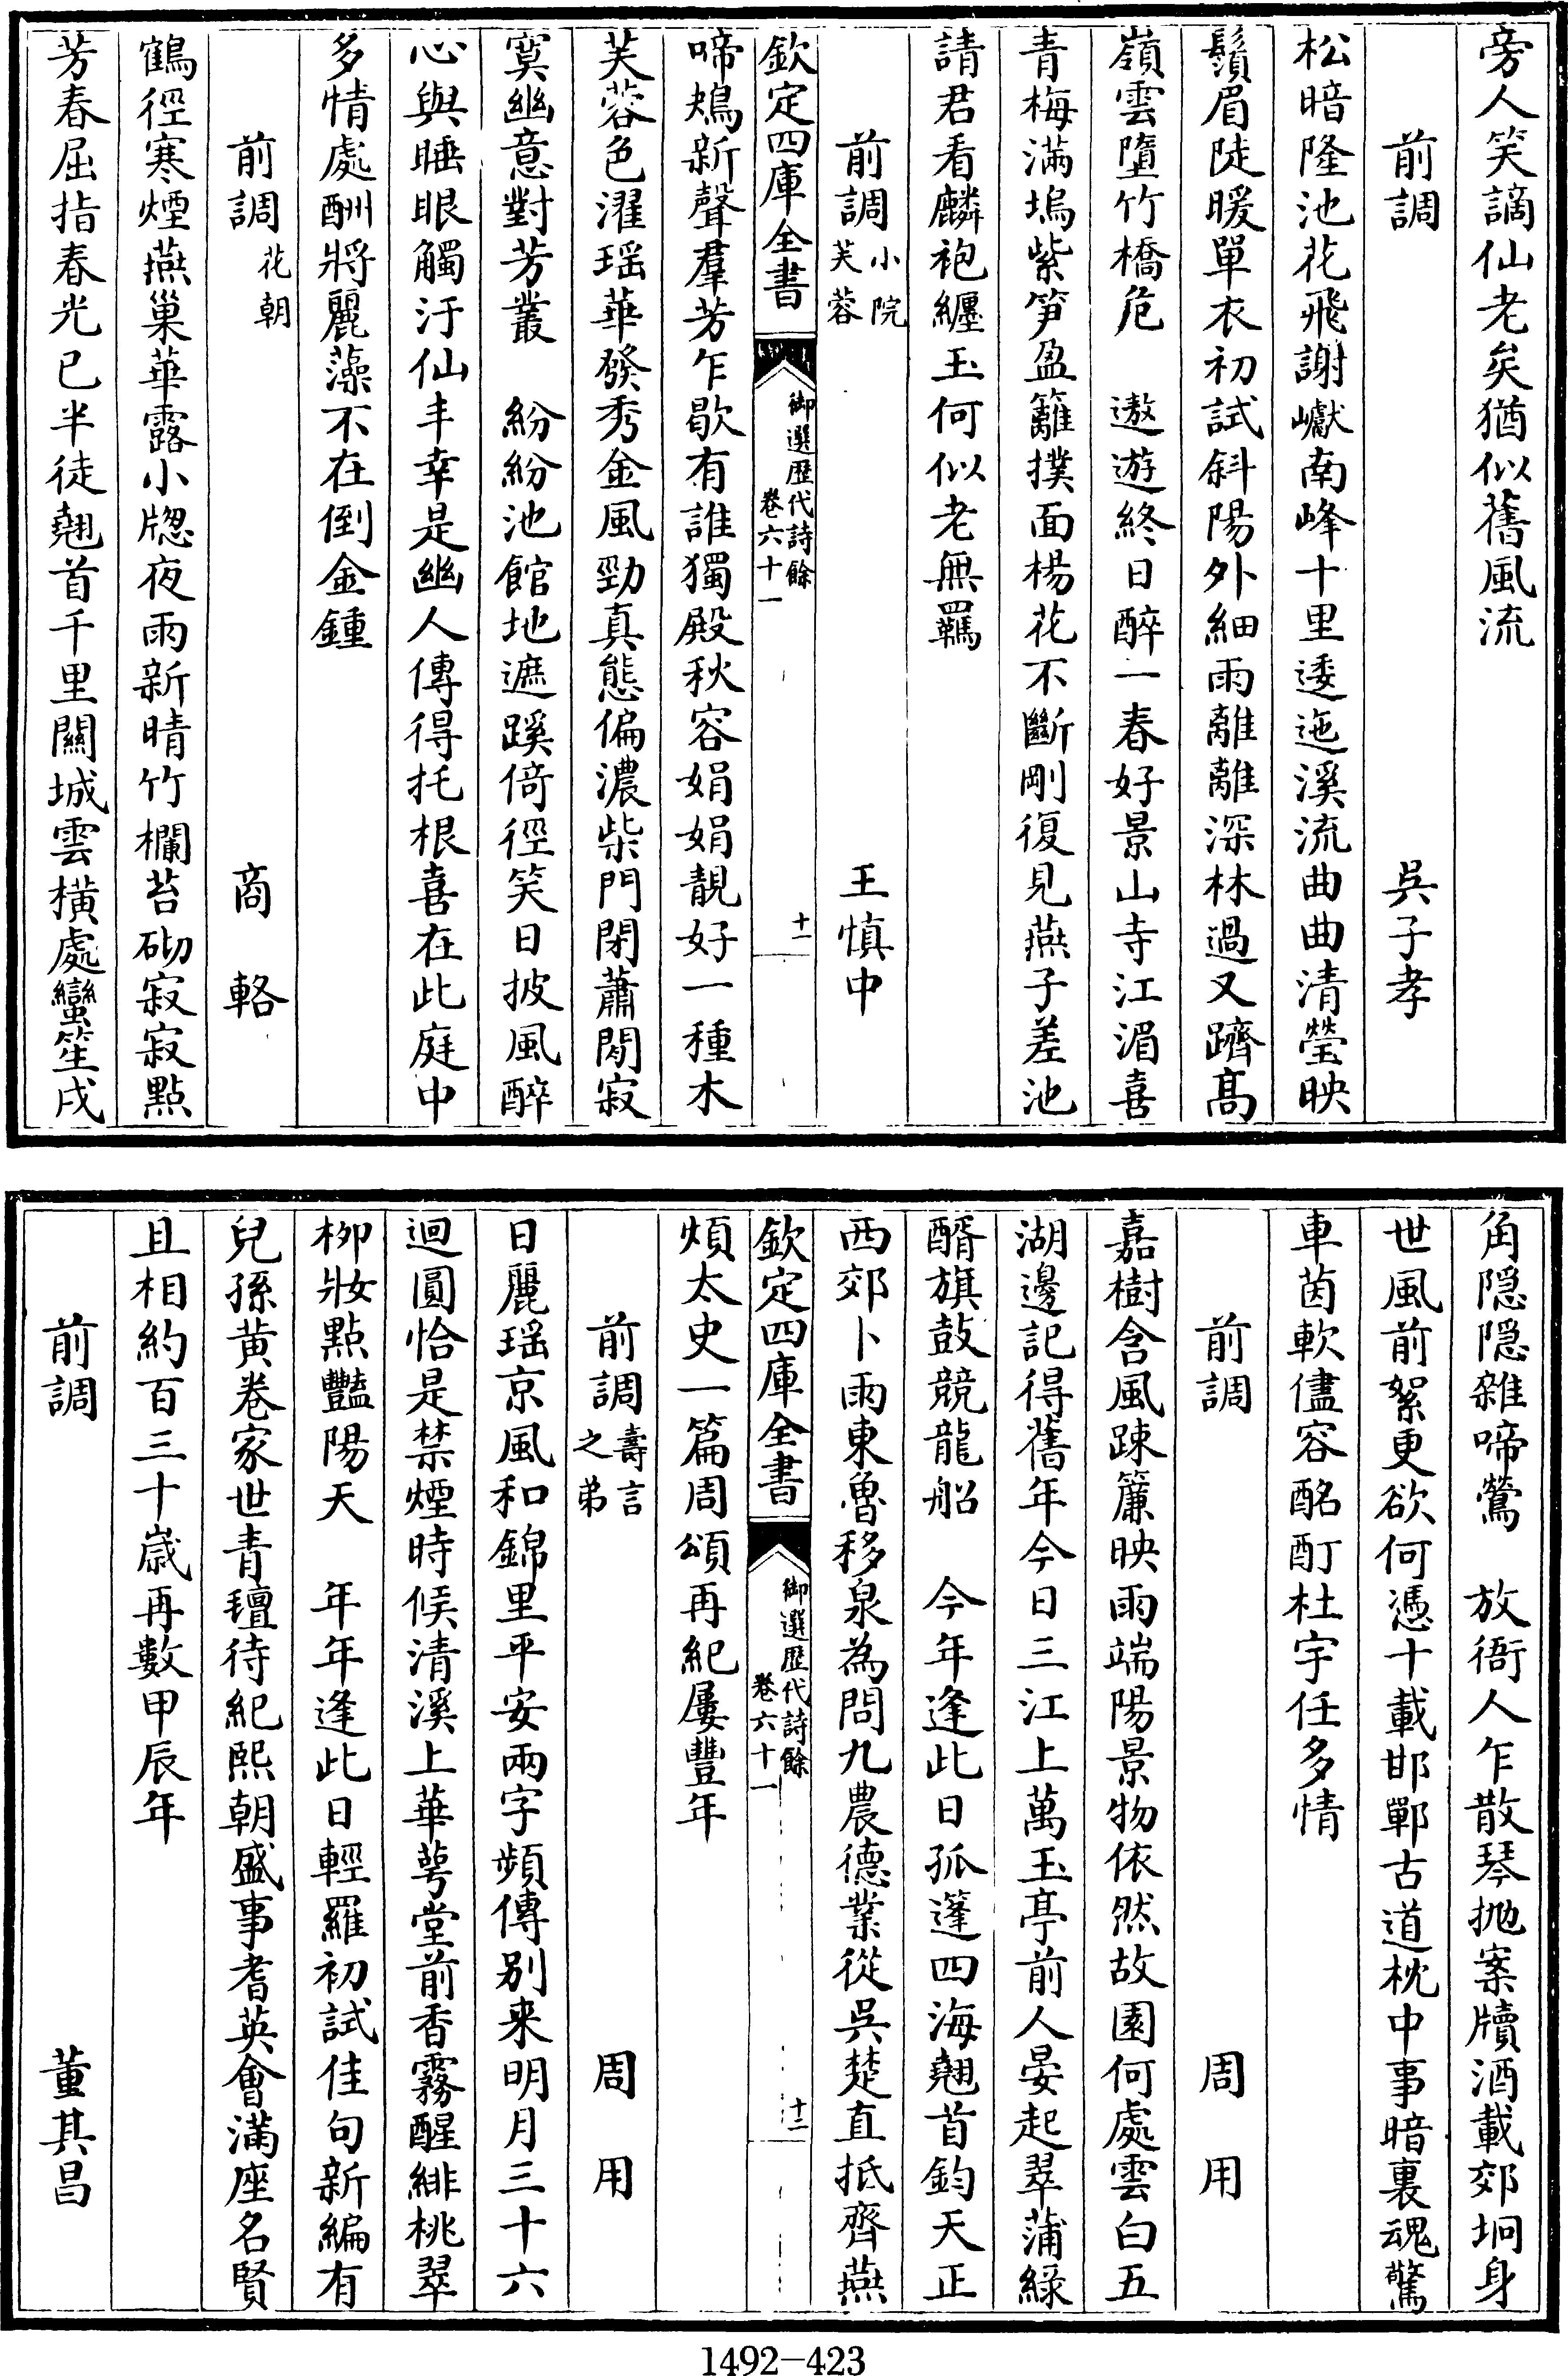 旁人笑謫仙老矣猶似舊風流
前調 吳子孝
松暗隆池花飛謝巘南峰十里逶迤溪流曲曲清瑩映
鬚眉陡暖單衣初試斜陽外細雨離離深林過又躋高
嶺雲墮竹橋危 遨遊終日醉一春好景山寺江湄喜
青梅滿塢紫笋盈籬撲面楊花不斷剛復見燕子差池
請君看麟袍纏玉何似老無羈
前調小院芙蓉 王慎中
欽定四庫全書 御選歷代詩餘 卷六十一 十一
啼鴂新聲羣芳乍歇有誰獨殿秋容娟娟靚好一種木
芙蓉色濯瑶華發秀金風勁真態偏濃柴門閉蕭閒寂
寞幽意對芳叢 紛紛池館地遮蹊倚徑笑日披風醉
心與睡眼觸汙仙丰幸是幽人傳得托根喜在此庭中
多情處酬將麗藻不在倒金鍾
前調花朝 商輅
鶴徑寒煙燕巢華露小牕夜雨新晴竹欄苔砌寂寂點
芳春屈指春光已半徒翹首千里關城雲橫處蠻笙戍
角隠隠雜啼鶯 放衙人乍散琴抛案牘酒載郊坰身
世風前絮更欲何憑十載邯鄲古道枕中事暗裏魂驚
車茵軟儘容酩酊杜宇任多情
前調 周用
嘉樹含風踈簾映雨端陽景物依然故園何處雲白五
湖邊記得舊年今日三江上萬玉亭前人晏起翠蒲綠
醑旗鼓競龍船 今年逢此日孤篷四海翹首鈞天正
西郊卜雨東魯移泉為問九農德業從吳楚直抵齊燕
欽定四庫全書 御選歷代詩餘 卷六十一 十二
煩太史一篇周頌再紀屢豐年
前調壽言之弟 周用
日麗瑶京風和錦里平安兩字頻傳别来明月三十六
迴圓恰是禁煙時候清溪上華萼堂前香霧醒緋桃翠
柳妝點豔陽天 年年逢此日輕羅初試佳句新編有
兒孫黄卷家世青氊待紀熙朝盛事耆英會滿座名賢
且相約百三十歲再數甲辰年
前調 董其昌
1492—423